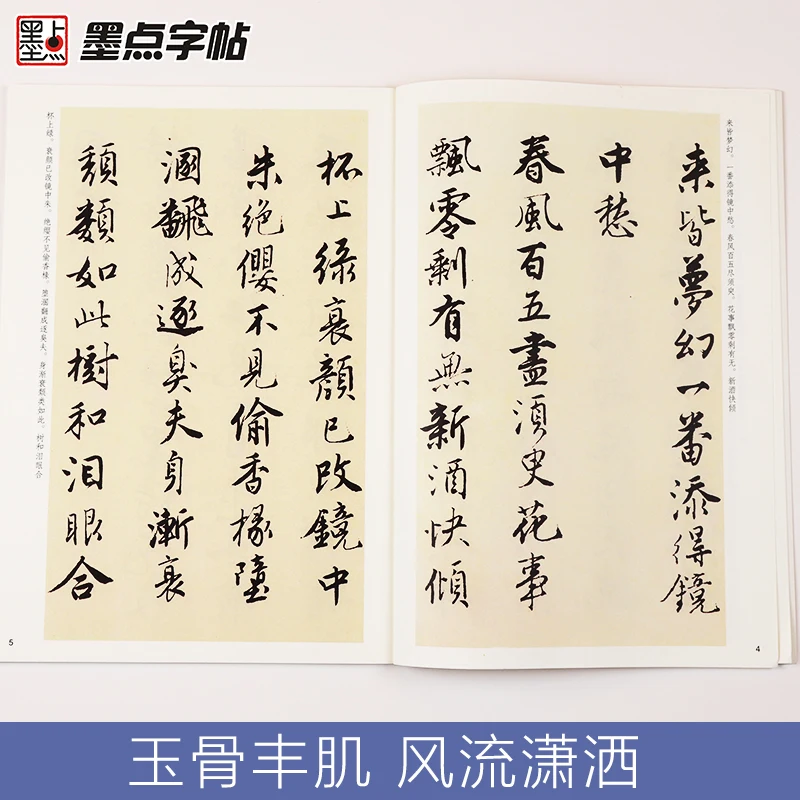 墨点
墨点字帖
来皆梦幻。一番添得镜中愁。春风百五尽须臾。花事飘零剩有无。新酒快倾
来皆夢幻一番添得鏡
中愁
春風百五盡湏臾花事
飄零剩有無新酒快傾
4
杯上緑衰顔已改鏡中
朱絶纓不見偷香椽墮
溷飜成逐臭夫身漸衰
頽類如此樹和泪眼合
杯上绿。衰颜已改镜中朱。绝缨不见偷香椽。堕溷翻成逐臭夫。身渐衰颓类如此。树和泪眼合
5
玉骨丰肌 风流潇洒